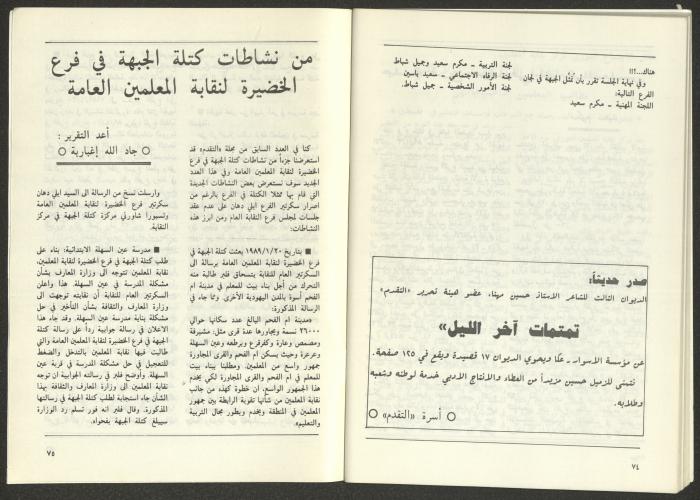 هناك...!!!
وفي نهاية الجلسة تقرر بأن تُمثّل الجبهة في لجان
الفرع التالية:
اللجنة المهنية ـ مكرم سعيد
لجنة التربية ـ مكرم سعيد وجميل شباط
لجنة الرفاه الاجتماعي ـ سعيد ياسين
لجنة الأمور الشخصية ـ جميل شباط.
صدر حديثاً:
الديوان الثالث للشاعر الاستاذ حسين مهنا، عضو هيئة تحرير «التقدم»
تمتمات آخر الليل»
عن مؤسسة الاسوار ـ عكا ويحوي الديوان ١٧ قصيدة ويقع في ١٢٥ صفحة.
نتمنى للزميل حسين مزيداً من العطاء والانتاج الادبي خدمة لوطنه وشعبه
وطلابه.
○ أسرة «التقدم» ○
٧٤
من نشاطات كتلة الجبهة في فرع
الخضيرة لنقابة المعلمين العامة
أعد التقرير :
○ جاد الله إغبارية ○
كنا في العدد السابق من مجلة «التقدم» قد
استعرضنا جزءاً من نشاطات كتلة الجبهة في فرع
الخضيرة لنقابة المعلمين العامة وفي هذا العدد
الجديد سوف نستعرض بعض النشاطات الجديدة
التي قام بها ممثلا الكتلة في الفرع بالرغم من
اصرار سكرتير الفرع ايلي دهان على عدم عقد
جلسات لمجلس فرع النقابة العام ومن ابرز هذه
النشاطات:
■ بتاريخ ١٩٨٩/١/٢٠ بعثت كتلة الجبهة في
فرع الخضيرة لنقابة المعلمين العامة برسالة الى
السكرتير العام للنقابة يتسحاق فلبر طالبة منه
التحرك من أجل بناء بيت للمعلم في مدينة ام
الفحم أسوة بالمدن اليهودية الأخرى. ومما جاء في
الرسالة المذكورة:
«مدينة ام الفحم البالغ عدد سكانها حوالي
٢٦٠٠٠ نسمة ويجاورها عدة قرى مثل: مشيرفة
ومصمص وعارة وكفرقرع وبرطعه وعين السهلة
وعرعرة وحيث يسكن ام الفحم والقرى المجاورة
جمهور واسع من المعلمين. ومطلبنا ببناء بيت
للمعلم في ام الفحم والقرى المجاورة لكي يخدم
هذا الجمهور الواسع، ان خطوة كهذه من جانب
نقابة المعلمين من شأنها تقوية الرابطة بين جمهور
المعلمين في المنطقة ويخدم ويطور مجال التربية
والتعليم»
وارسلت نسخ من الرسالة الى السيد ايلي دهان
سكرتير فرع الخضيرة لنقابة المعلمين العامة
وتسيبورا شاورني مركزة كتلة الجبهة في مركز
النقابة.
■ مدرسة عين السهلة الابتدائية: بناء على
طلب كتلة الجبهة في فرع الخضيرة لنقابة المعلمين،
نقابة المعلمين تتوجه الى وزارة المعارف بشأن
مشكلة المدرسة في عين السهلة. هذا واعلن
السكرتير العام للنقابة أن نقابته توجهت الى
وزارة المعارف والثقافة بشأن التأخير في حل
مشكلة بناية مدرسة عين السهلة. وقد جاء هذا
الاعلان في رسالة جوابية رداً على رسالة كتلة
الجبهة في فرع الخضيرة لنقابة المعلمين العامة والتي
طالبت فيها نقابة المعلمين بالتدخل والضغط
للتعجيل في حل مشكلة المدرسة في قرية عين
السهلة. وأوضح فلبر في رسالته الجوابية ان توجه
نقابة المعلمين الى وزارة المعارف والثقافة بهذا
الشأن جاء استجابة لطلب كتلة الجبهة في رسالتها
المذكورة. وقال فلبر انه فور تسلم رد الوزارة
سيبلغ كتلة الجبهة بفحواه.
٧٥